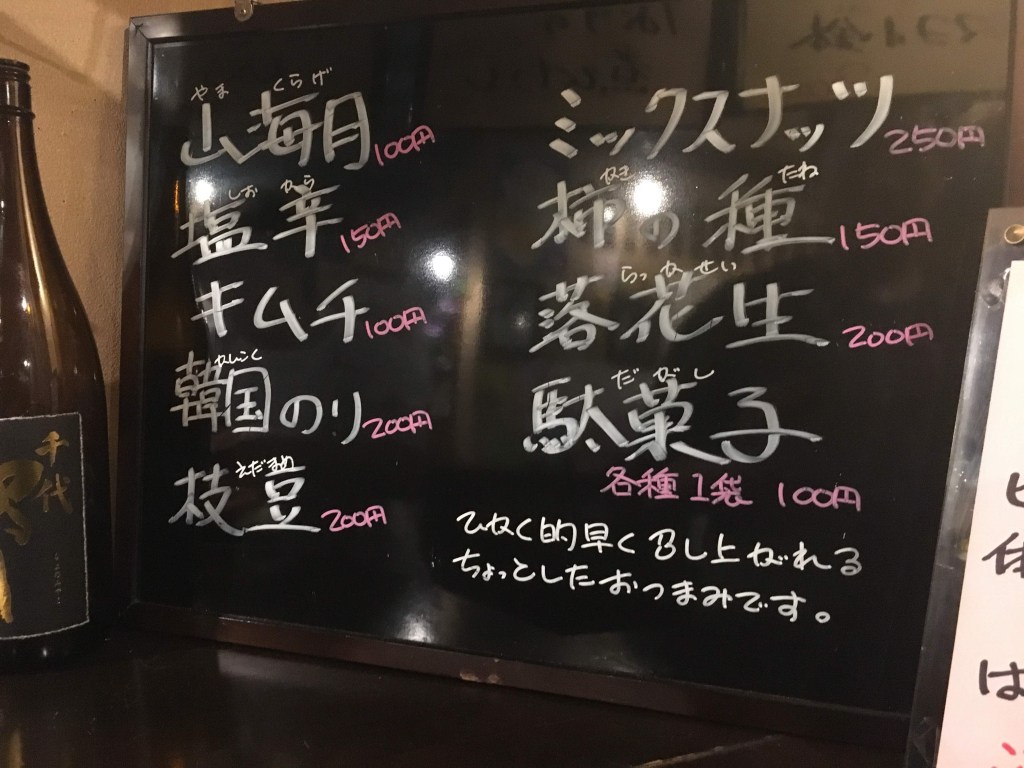 やま くらげ
山海月 100円
しお から
塩辛 150円
キムチ 100円
かんこく
韓国のり 200円
えだまめ
枝豆 200円
ミックスナッツ 250円
かき たね
柿の種 150円
らっかせい
落花生 200円
だがし
駄菓子
各種1袋 100円
ひかく的早くBし上がれる
ちょっとしたおつまみです。
千代
は